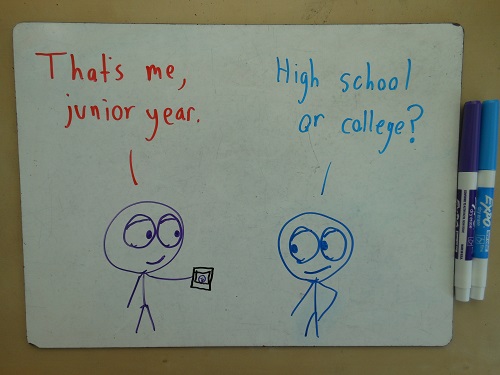 That's me,
junior year.
High school
or college?
EXPO